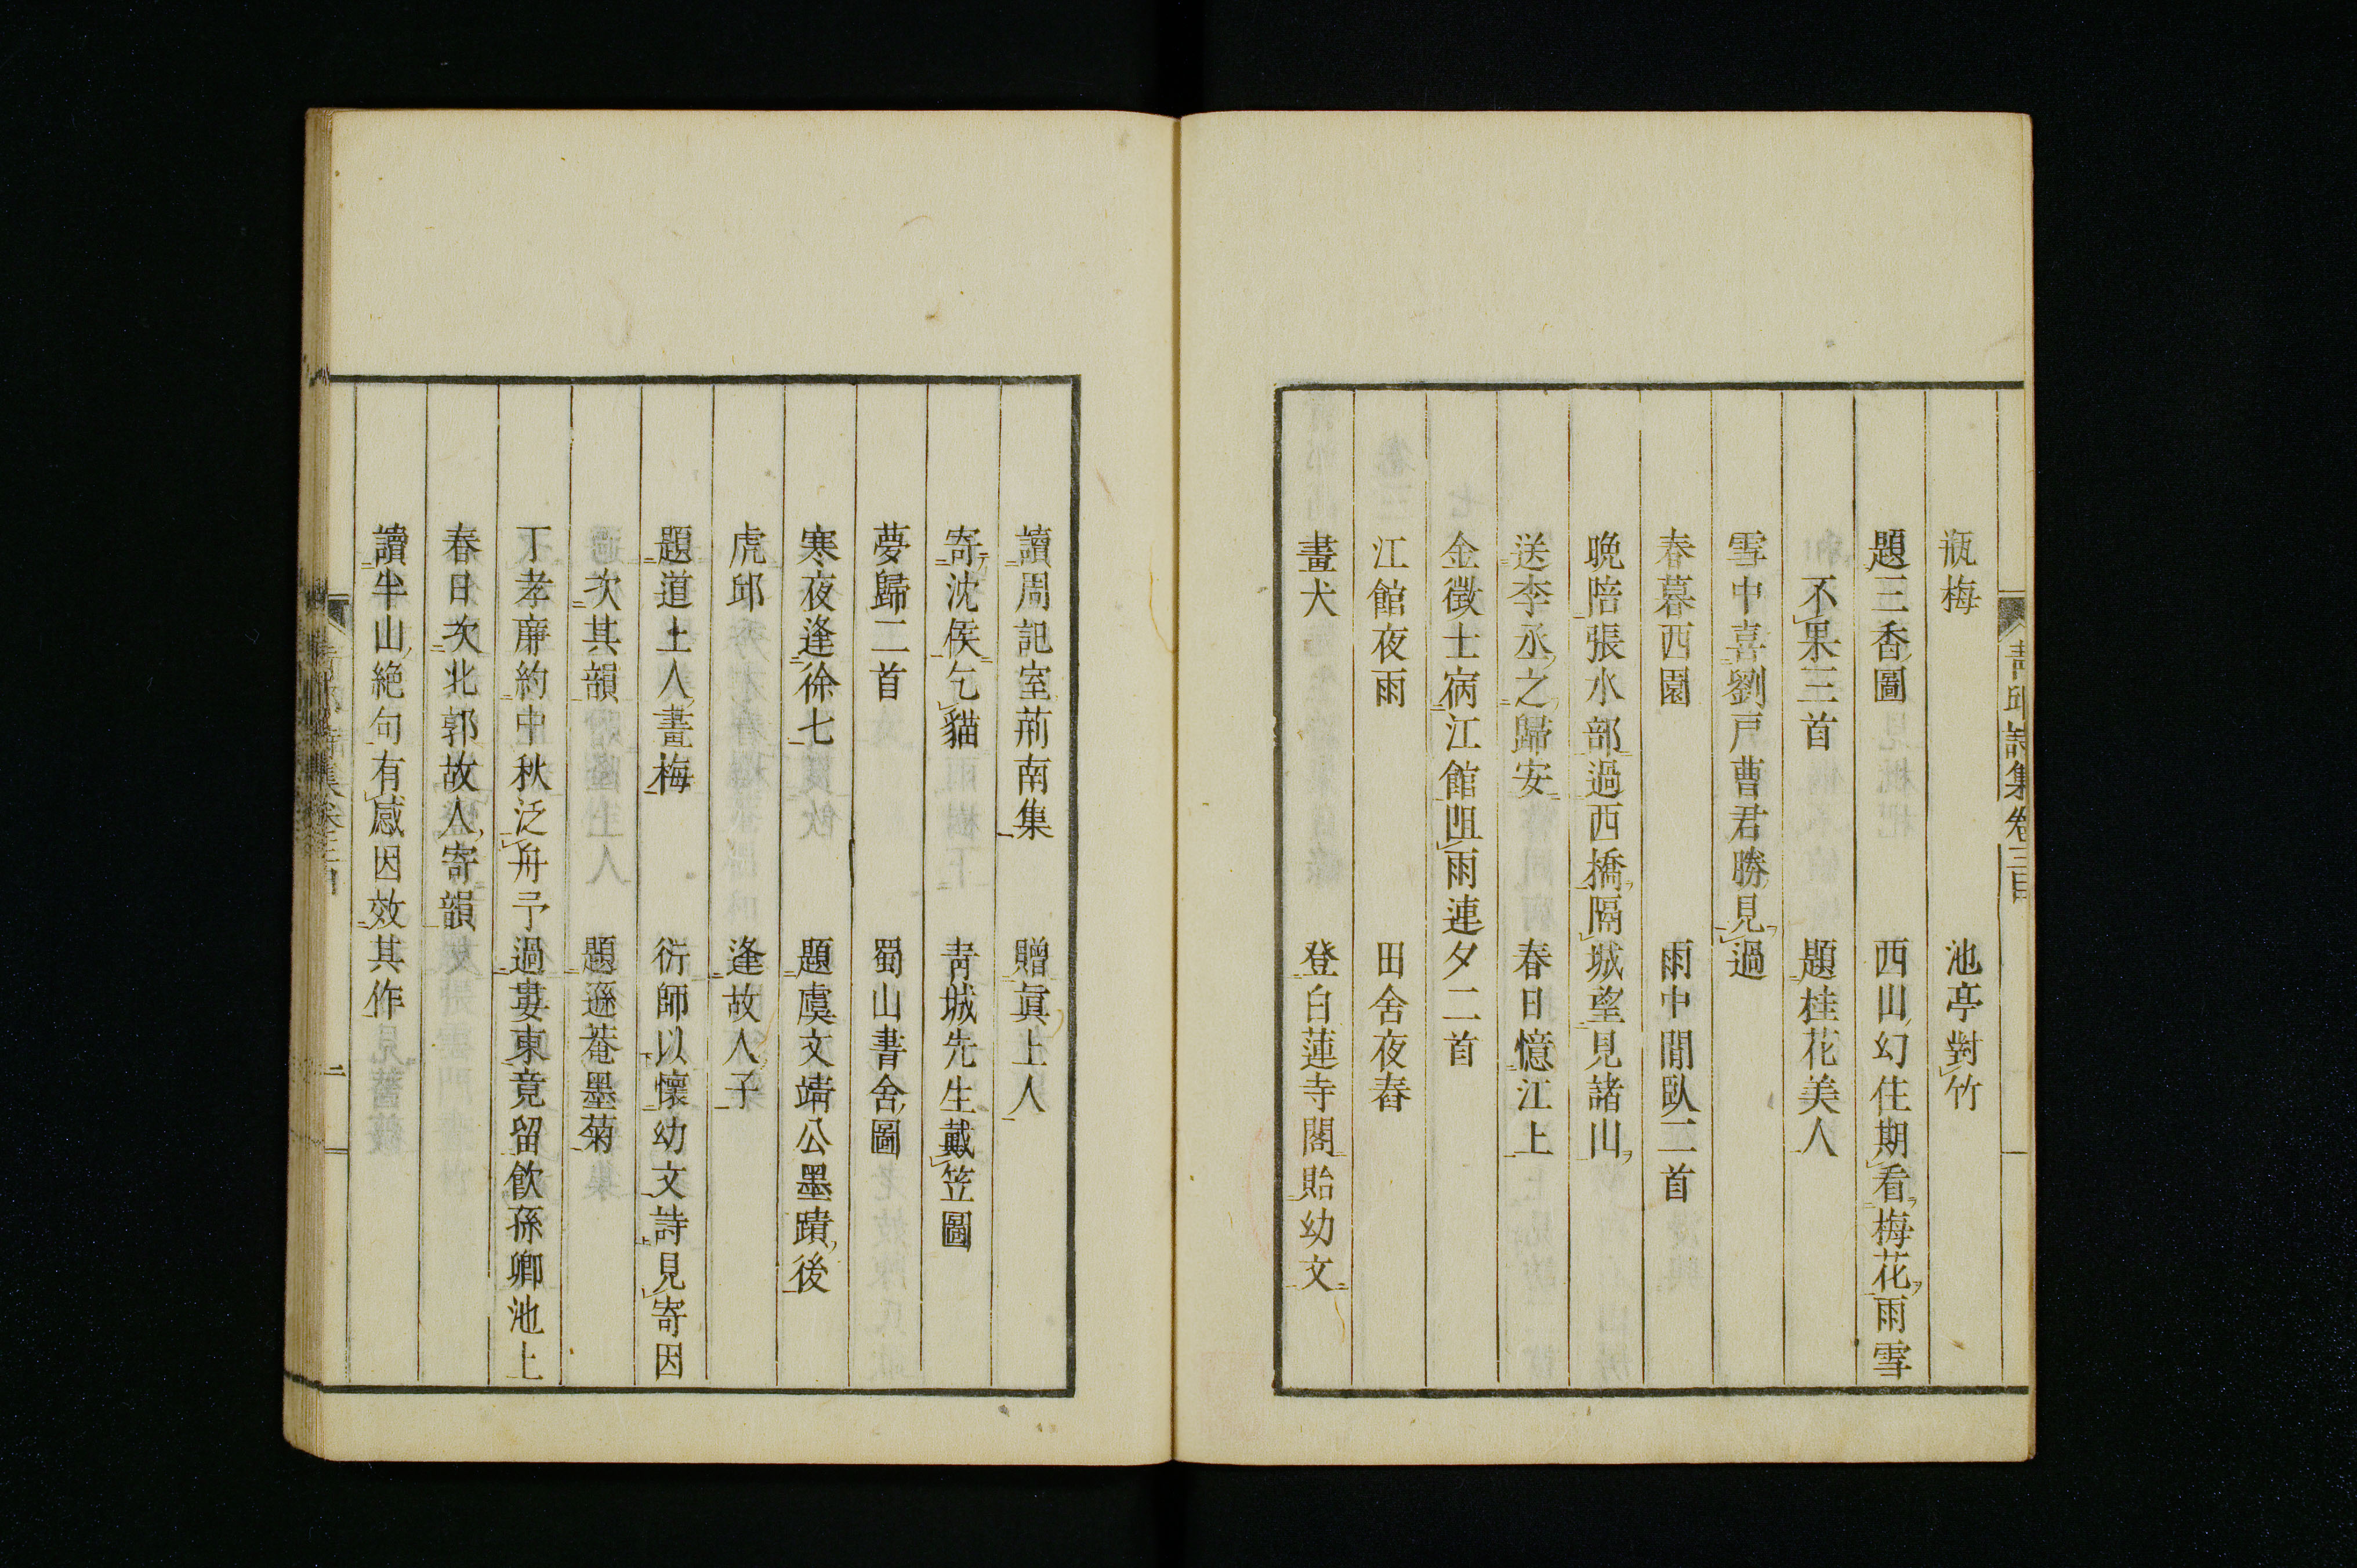 青邱詩集卷三目
瓶梅　池亭對竹
題三香圖　西山幻住期看梅花雨雪
不果三首　題桂花美人
雪中喜劉戸曹君勝見過
春暮西園　雨中閒臥二首
晩陪張水部過西橋隔城望見諸山
送李丞之歸安　春日憶江上
金徵士病江館阻雨連夕二首
江館夜雨　田舍夜舂
畫犬　登白蓮寺閣貽幼文
讀周記室荊南集　贈眞上人
寄沈侯乞貓　靑城先生戴笠圖
夢歸二首　蜀山書舍圖
寒夜逢徐七　題虞文靖公墨蹟後
虎邱　逢故人子
題道上人畫梅　衍師以懷幼文詩見寄因
次其韻　題遜菴墨菊
丁孝廉約中秋泛舟予過婁東竟留飮孫卿池上
春日次北郭故人寄韻
讀半山絶句有感因效其作
詩集卷三目
二